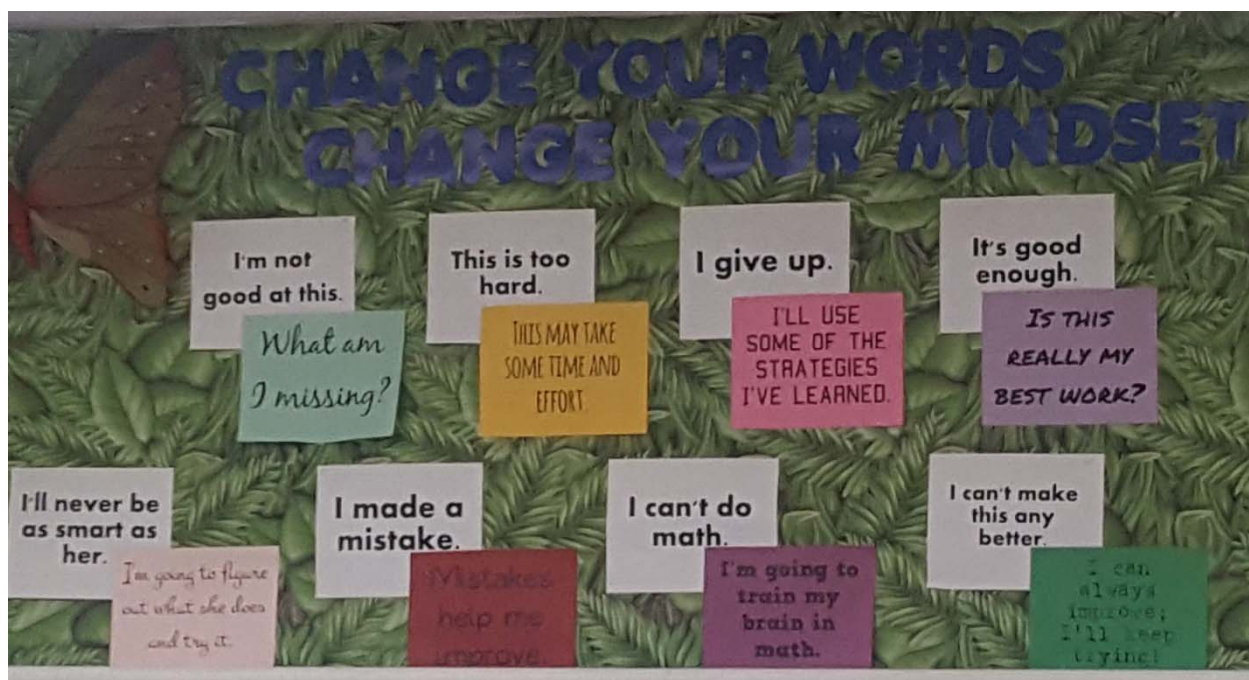 CHANGE YOUR WORDS
CHANGE YOUR MINDSET
I'm not
good at this.
What am
I missing?
This is too
hard.
THIS MAY TAKE
SOME TIME AND
EFFORT.
I give up.
I'LL USE
SOME OF THE
STRATEGIES
I'VE LEARNED.
It's good
enough.
IS THIS
REALLY MY
BEST WORK?
I'll never be
as smart as
her.
I'm going to figure
out what she does
and try it.
I made a
mistake.
Mistakes
help me
improve.
I can't do
math.
I'm going to
train my
brain in
math.
I can't make
this any
better.
I can
always
improve;
I'll keep
trying!